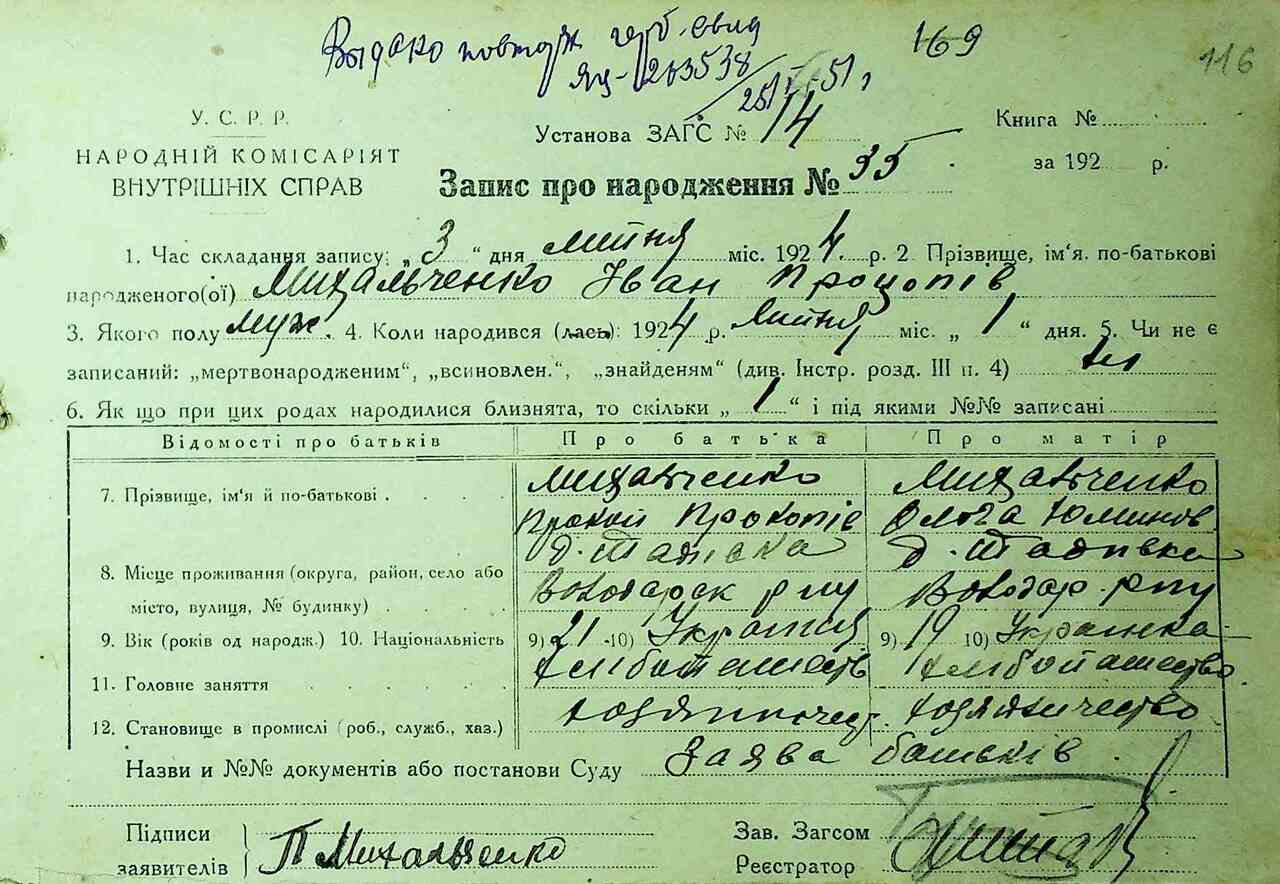 Выдано повтор герб. свид
ЯЦ-203538
25/VI 51 г
169
116
У. С. Р. Р.
НАРОДНІЙ КОМІСАРІЯТ
ВНУТРІШНІХ СПРАВ
Установа ЗАГС № 14
Книга №
за 192 р.
Запис про народження № 35
1. Час складання запису: „ 3 “ дня липня міс. 1924. р. 2 Прізвище, ім‘я. по-батькові
народженого(ої) Михальченко Іван Прокопів
3. Якого полу муж. 4. Коли народився (лась): 1924 р. липня міс. „ 1 “ дня. 5. Чи не є
записаний: „мертвонародженим“, „всиновлен.“, „знайденям“ (див. Інстр. розд. III п. 4) ні
6. Як що при цих родах народилися близнята, то скільки „ 1 “ і під якими №№ записані
Відомості про батьків Про батька Про матір
7. Прізвище, ім‘я й по-батькові . Михальченко Михальченко
Прокопів Ольга
8. Місце проживання (округа, район, село або д. д.
місто, вулиця, № будинку) Володарск рну Володар. рну
9. Вік (років од народж.) 10. Національність 9) 21 10) 9) 19 10) Українка
11. Головне заняття хлібопашеств хлібопашество
12. Становище в промислі (роб., служб., хаз.) хозяиничество
Назви и №№ документів або постанови Суду Заява батьків.
Підписи
заявителів П Михальченко
Зав. Загсом
Реєстратор